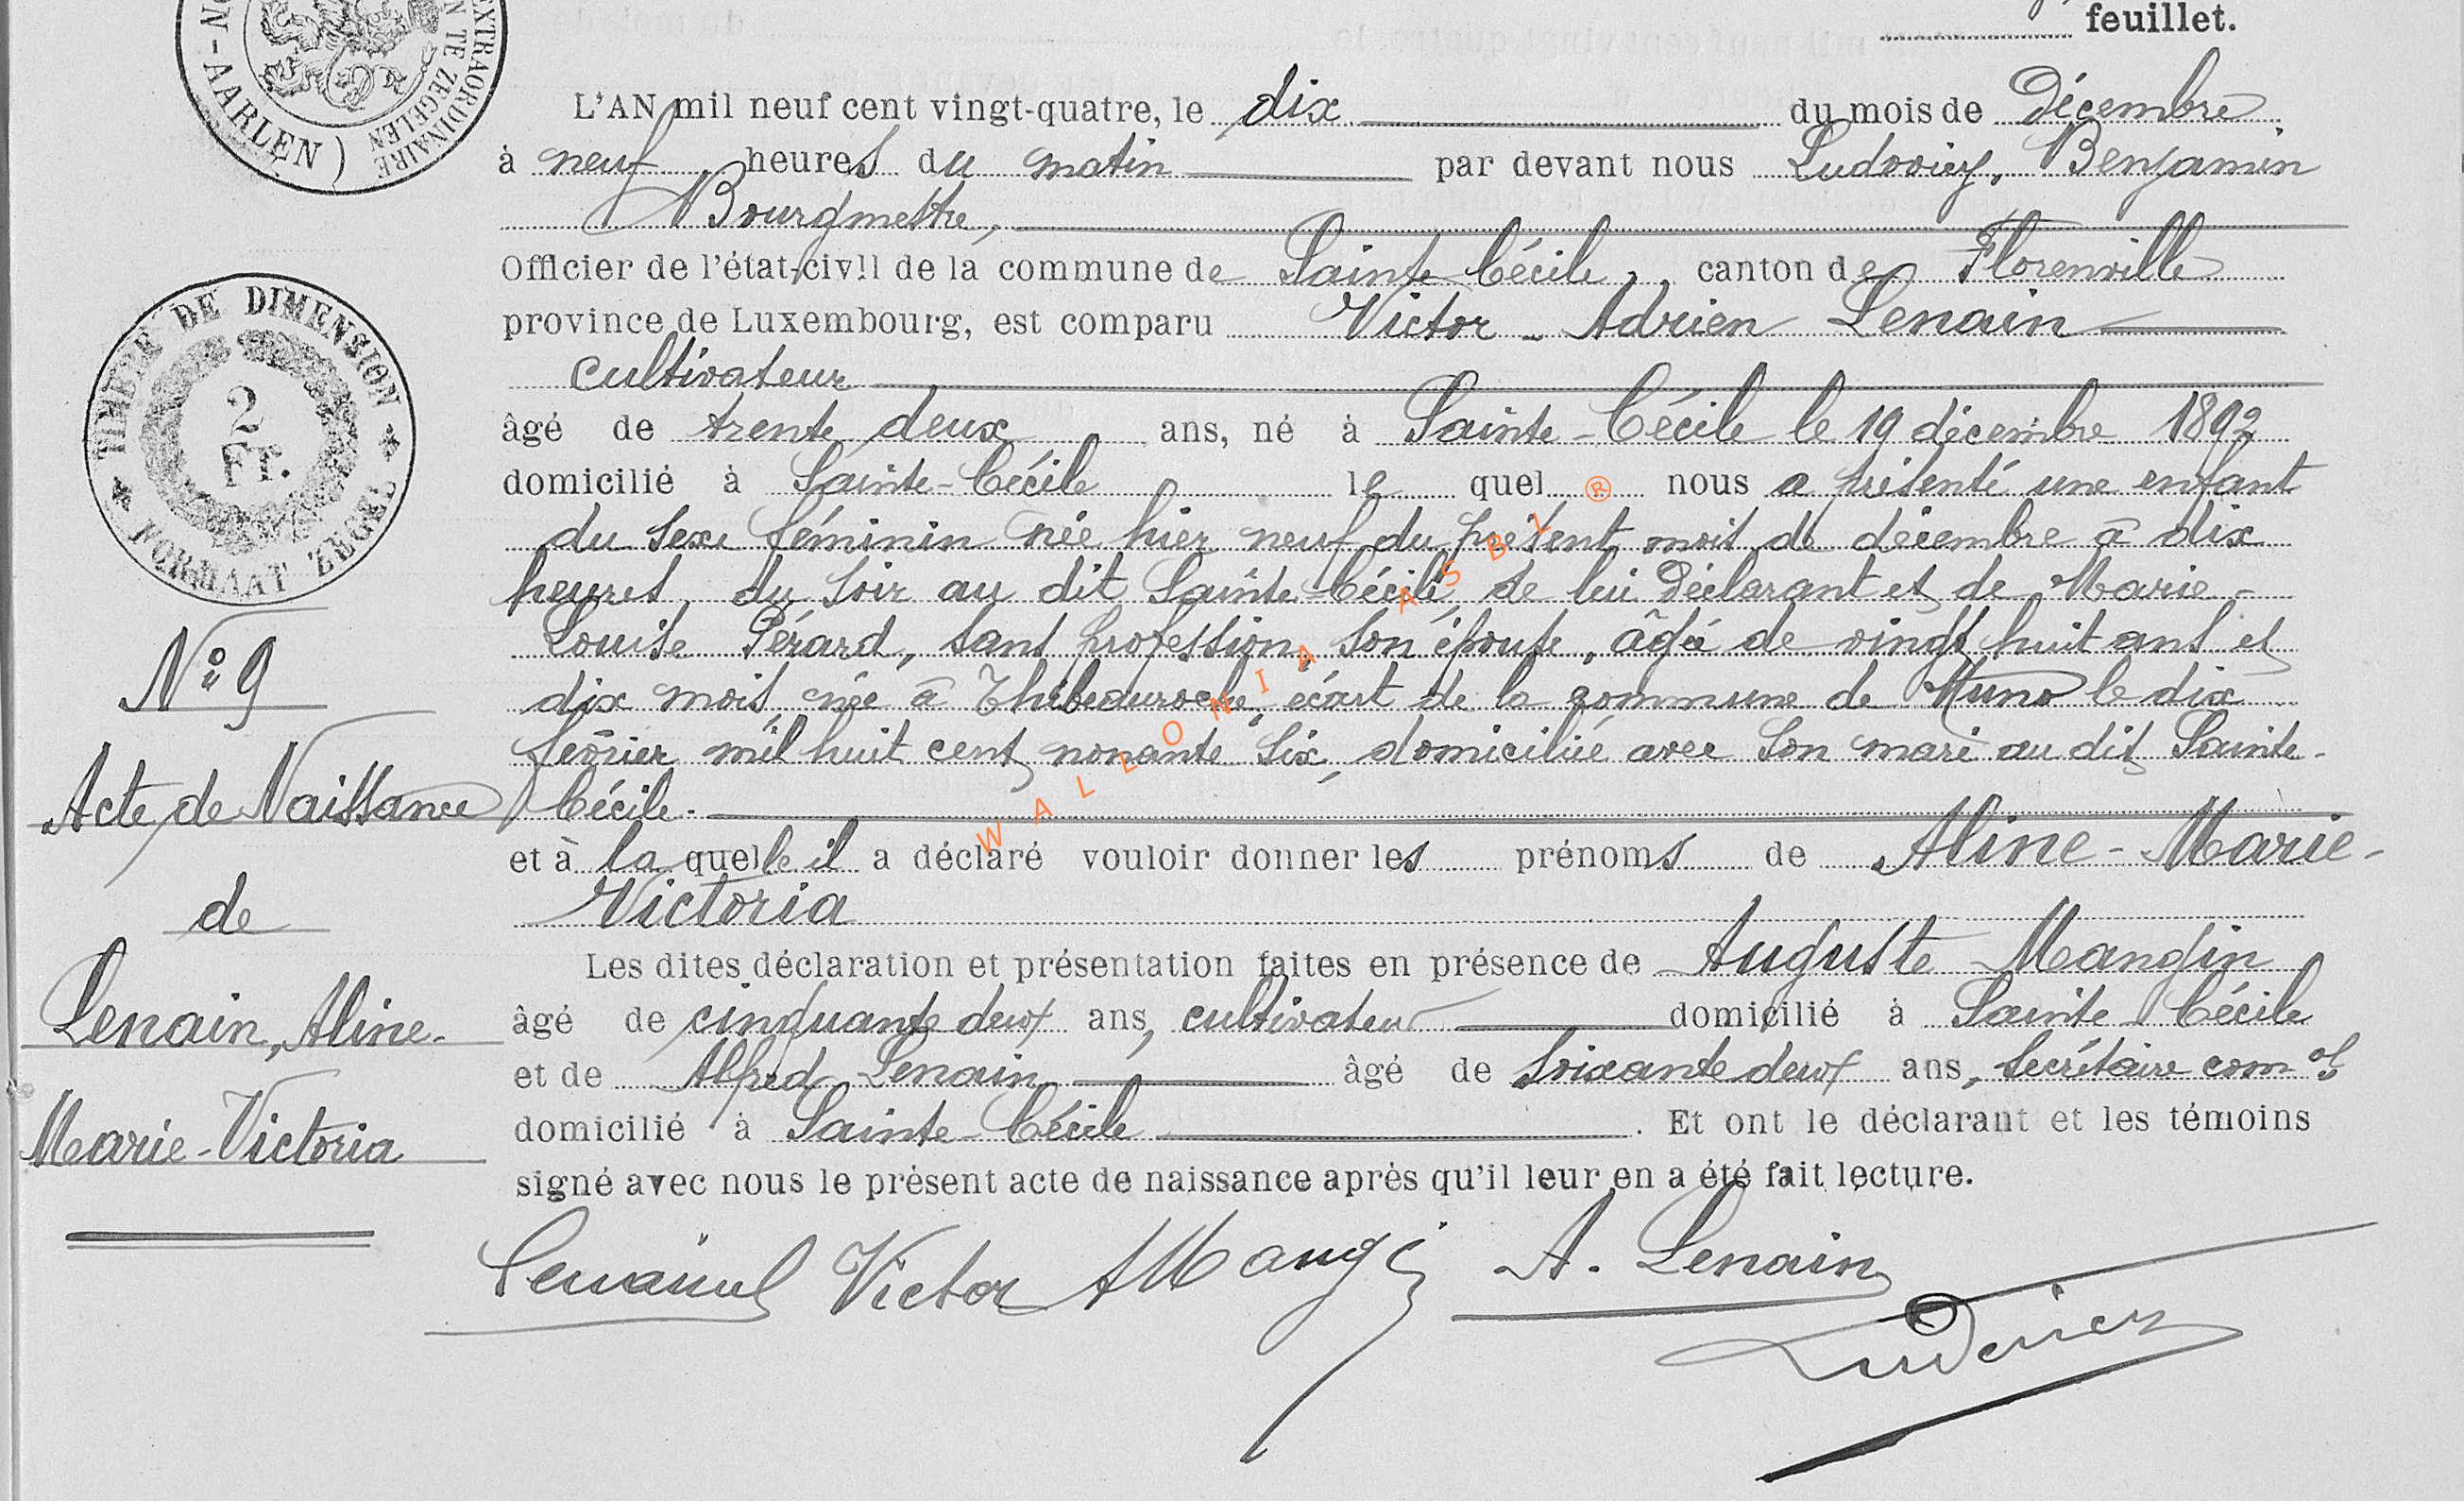 EXTRAORDINAIRE
N TE ZEGELEN
NO - AARLEN )
feuillet.
L'AN mil neuf cent vingt-quatre, le dix du mois de Décembre
à neuf heures du matin par devant nous Ludovicy, Benjamin
Bourgmestre,
Officier de l'état-civil de la commune de Sainte Cécile, canton de Florenville
province de Luxembourg, est comparu Victor - Adrien Lenain
cultivateur
TIMBRE DE DIMENSION
2
Fr.
* FORMAAT ZEGEL *
âgé de trente deux ans, né à Sainte-Cécile le 19 décembre 1892
domicilié à Sainte-Cécile le quel nous a présenté une enfant
du sexe féminin née hier neuf du présent mois de décembre à dix
heures du soir au dit Sainte-Cécile, de lui Déclarant et de Marie-
Louise Pérard, sans profession, son épouse, âgée de vingt huit ans et
dix mois, née à Thibeauroche, écart de la commune de Muno le dix
février mil huit cent nonante six, domiciliée avec son mari au dit Sainte-
Cécile.
et à la quelle il a déclaré vouloir donner les prénoms de Aline-Marie-
Victoria
Les dites déclaration et présentation faites en présence de Auguste Mangin
âgé de cinquante deux ans, cultivateur domicilié à Sainte Cécile
et de Alfred Lenain âgé de soixante deux ans, secrétaire com al
domicilié à Sainte-Cécile. Et ont le déclarant et les témoins
signé avec nous le présent acte de naissance après qu'il leur en a été fait lecture.
N° 9
Acte de Naissance
de
Lenain, Aline-
Marie-Victoria
Victor AMangin A. Lenain
Ludovicy
WALLONIA ASBL ®